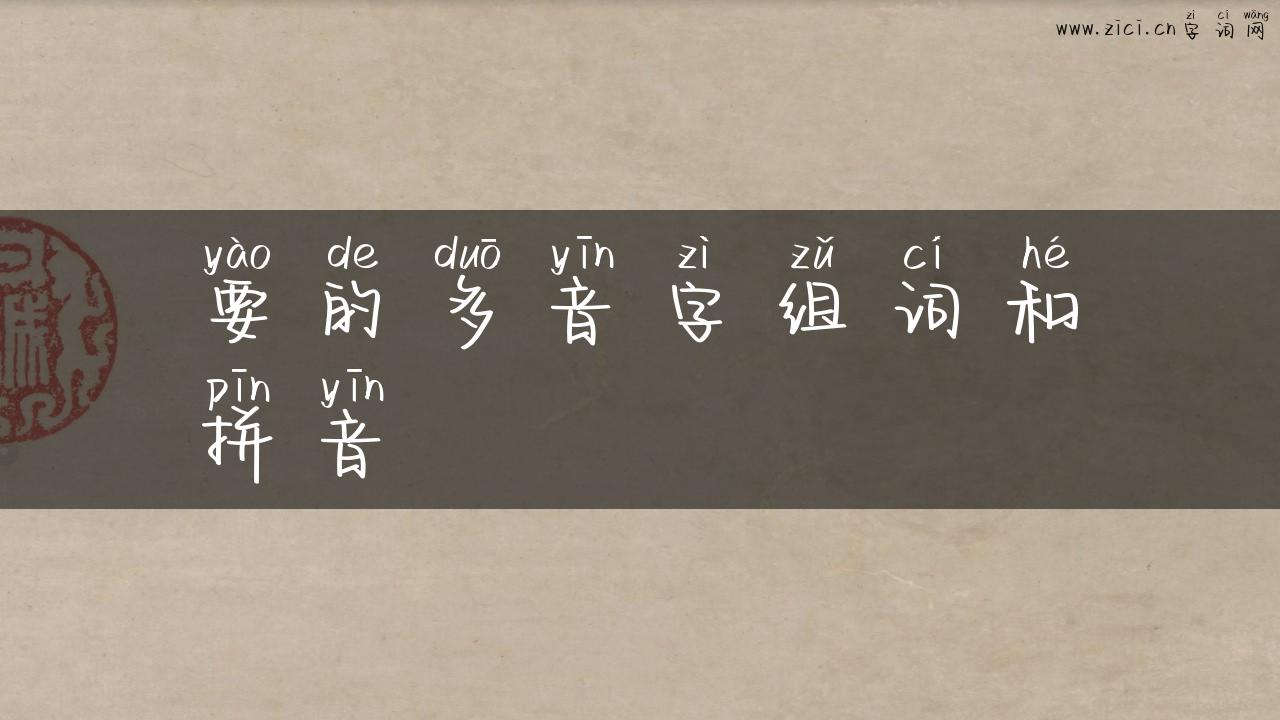 zì cí wǎng
www.zici.cn 字词网
yào de duō yīn zì zǔ cí hé
要的多音字组词和
pīn yīn
拼音